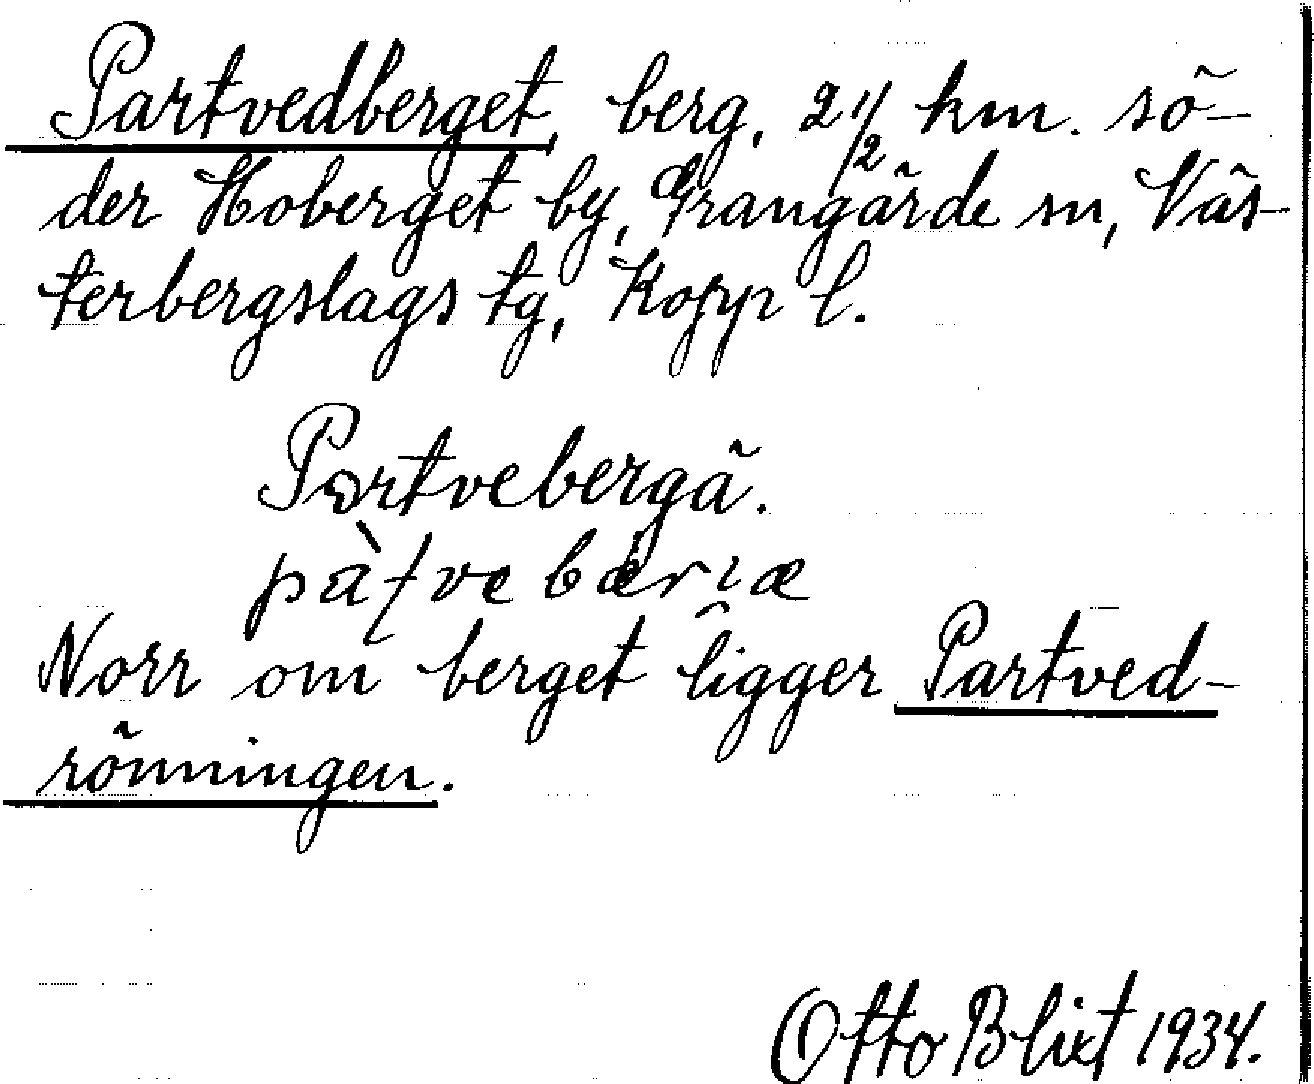 Partvedberget, berg, 2 1/2 km. sö-
der Hoberget by, Grangärde sn, Väs-
terbergslags tg, Kopp l.
Partvebergä.
Norr om berget ligger Partved-
rönningen.
Otto Blixt 1934.